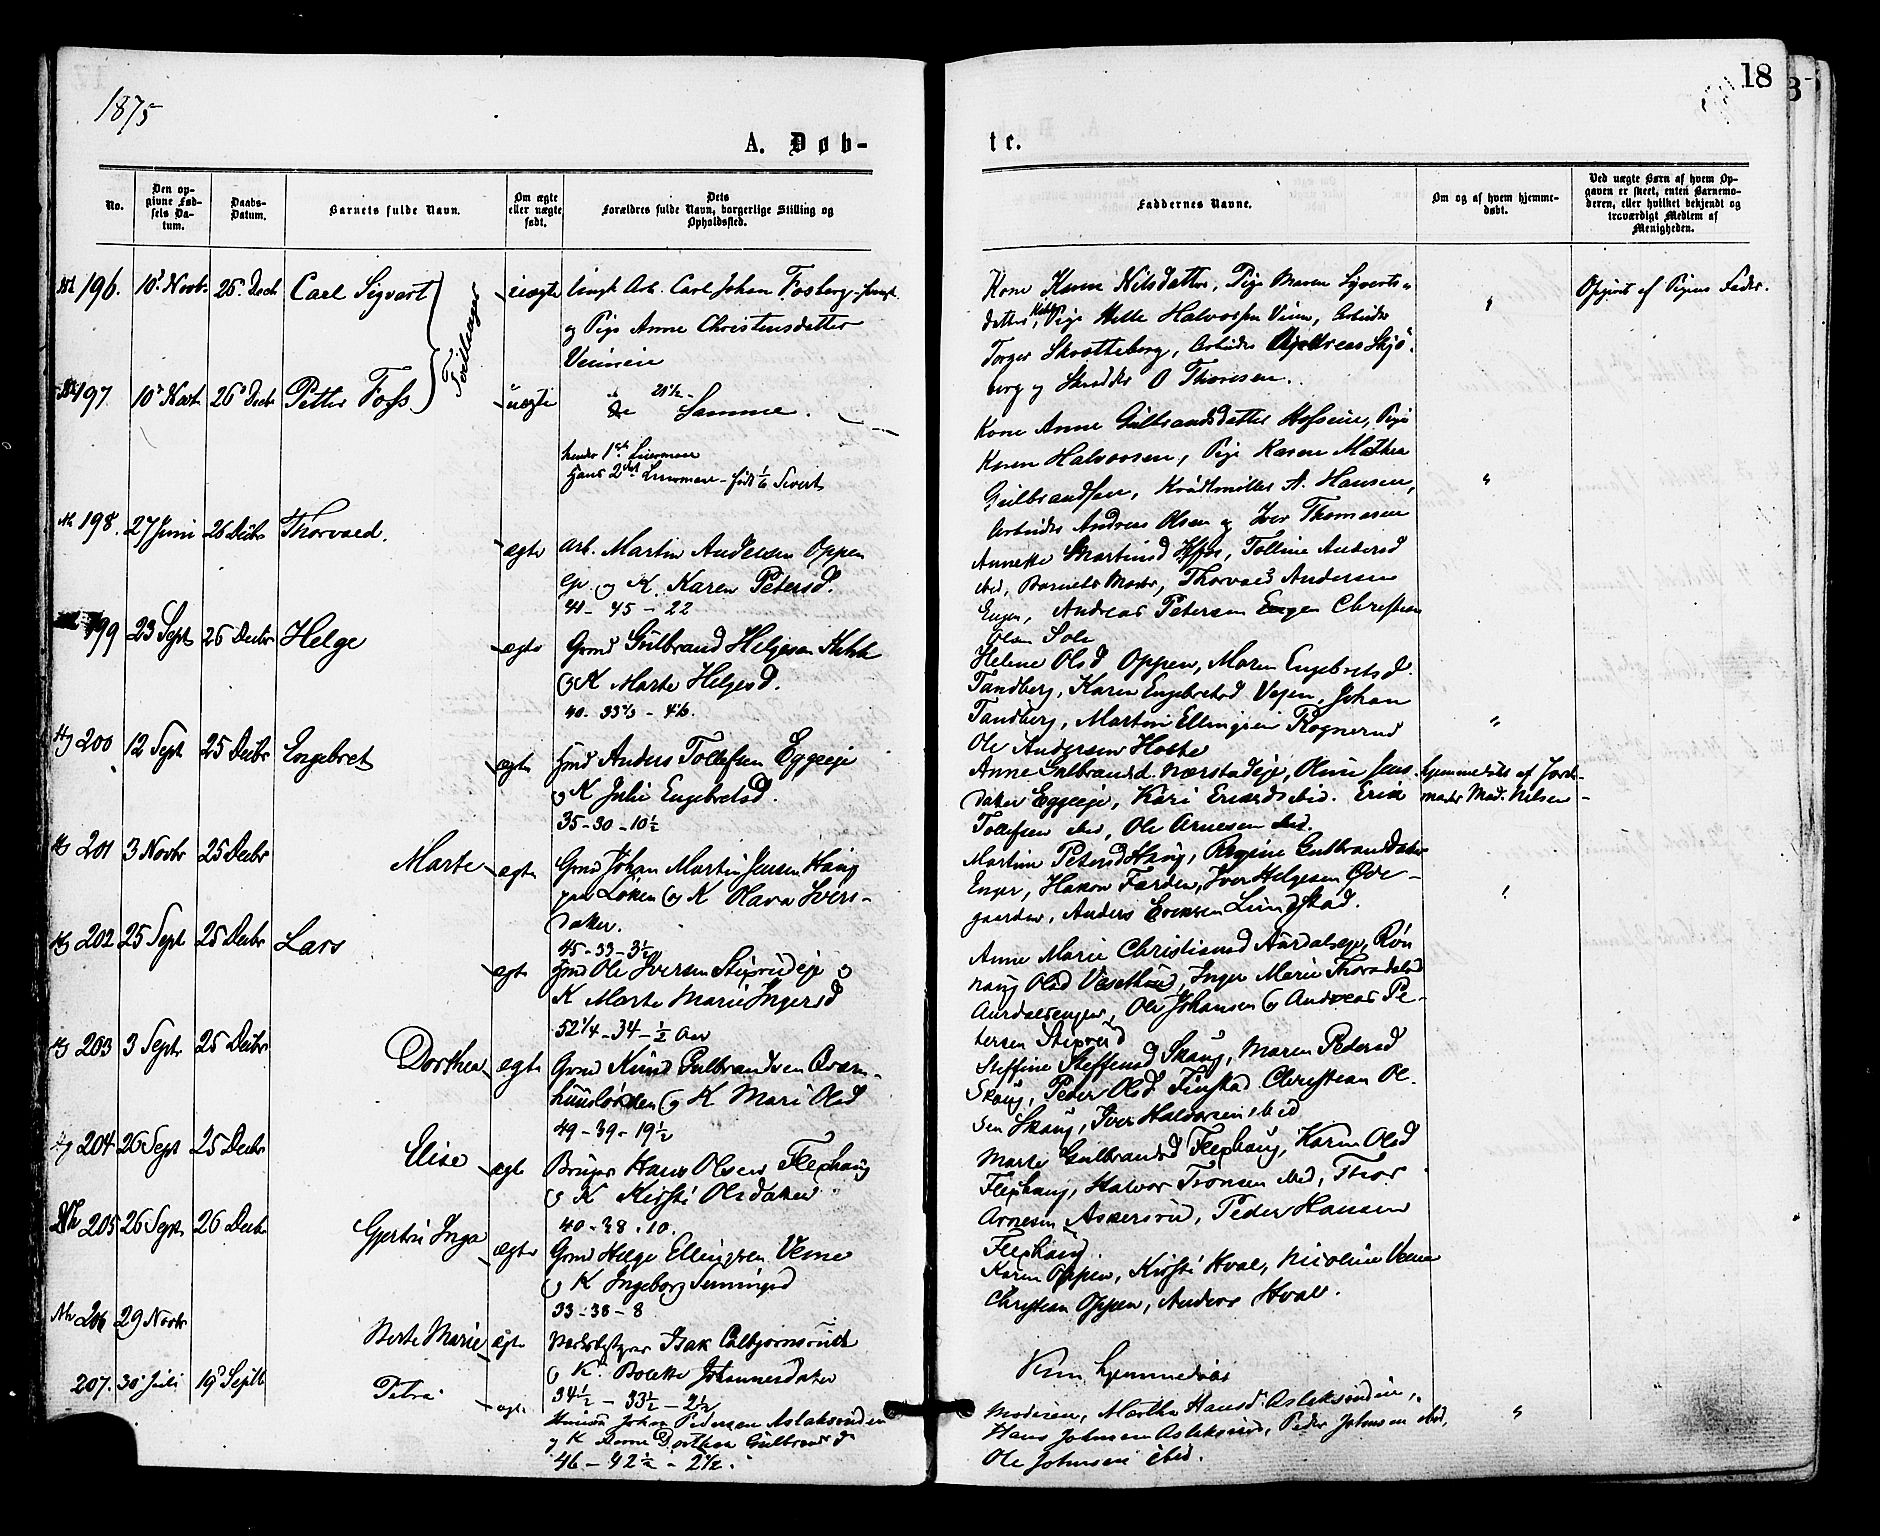 1875
18
A. Døb-
te.
No.
Den op-
givne Fød-
sels Da-
tum.
Daabs-
Datum.
Barnets fulde Navn.
Om ægte
eller uægte
født.
Dets
Forældres fulde Navn, borgerlige Stilling og
Opholdssted.
Faddernes Navne.
Om og af hvem hjemme-
døbt.
Ved uægte Børn af hvem Op-
gaven er skeet, enten Barnemo-
deren, eller hvilket bekjendt og
troværdigt Medlem af
Menigheden.
196. 10' Novb. 26' Decb Carl Sigvart
Tvillinger
uægte Ungk Arb. Carl Johan Fosberg
og Pige Anne Christensdatter
Veimen
Kone Karen Nilsdatter, Pige Maren Syverts-
datter, Pige Helle Halvorsen Veien, Arbeider
Torger Skrotteberg, Arbeider Andreas Skjø-
berg og Skrædder O Thoresen.
"
Opgivet af Pigens Fader.
197 10' Novb 26' Decb Petter Foss
uægte
de Samme.
21½
hendes 1ste Leiermaal
Hans 2det Leiermaal - født Sivert
Kone Anne Gulbrandsdatter Hofseie, Pige
Karen Halvorsen, Pige Karen Mathea
Gulbrandsen, A. Hansen,
Arbeider Andreas Olsen og Iver Thomasen
"
198. 27 Juni 26 Decbr Thorvald.
ægte Arb. Martin Andersen Oppen
og K. Karen Petersd.
41 - 45 - 22
Annette Martinsd , Tolline Andersd
ibid, Barnets Moder, Thorvald Andersen
Engen, Andreas Petersen Engen Christian
Olsen Solv
199 23 Sept 26 Decbr Helge
ægte Grmd Gulbrand Helgesen
og K Marte Helgesd.
40. 33⅔ - 4⅙.
Helene Olsd Oppen, Maren Engebretsd.
Tandberg, Karen Engebretsd Vejen, Johan
Tandberg, Martin Ellingsen Rognerud
Ole Andersen Hoste
"
200 12 Sept 25 Decbr Engebret
ægte Hmd Anders Tollefsen Eggeeje
og K Julie Engebretsd.
35 - 30 - 10½
Anne Gulbrandsd. Nærstadeje, Oline Jens-
datter Eggeeje, Kari Erlandsd ibid. Erik
Tollefsen ibid, Ole Arnesen ibid.
hjemmedøbt af Jord-
moder Mad. Nilsen
201 3 Novbr 25 Decbr Marte
ægte Grmd Johan Martin Jensen Haug
paa Løken og K Olava Ivers-
datter.
45 - 33 - 3½
Martine Petersd Haug, Regine Gulbrandsdatter
Enger, Hakon Farden, Iver Helgesen Øde-
gaarden, Anders Evensen Lundstad.
202 25 Sept 25 Decbr Lars
ægte Hmd Ole Iversen Stixrudeje og
K Marte Marie Ingersd
52¼ - 34 - ½ Aar
Anne Marie Christiansd Aurdalseje, Røn
naug Olsd Veselhaud, Inger Marie Thorsdatd
Aurdalsengen, Ole Johansen og Andreas Pe-
tersen Stixrud
203 3 Septr 25 Decbr Dorthea
ægte Grmd Knud Gulbrandsen Qvam-
huusløkken og K Mari Olsd
49 - 39 - 19½
Steffine Steffensd Skaug, Maren Pedersd
Skaug, Peder Olsd Finstad Christian Ol-
sen Skaug, Iver Halvorsen ibid
204 26 Sept 25 Decbr Elise
ægte Bruger Hans Olsen Fleshaug
og K Kirsti Olsdatter
40 - 38 - 10.
Marte Gulbrandsd Fleshaug, Karen Olsd
Fleshaug, Halvor Tronsen ibid, Thor
Arnesen Askersrud, Peder Hansen
Fleshaug.
205 26 Sept 26 Decbr Gjertrud Inga
ægte Grmd Helge Ellingsen Veme
og K Ingeborg Semmingsd
33 - 38 - 8
Karen Oppen, Kirsti Hval, Nicoline Veme
Christian Oppen, Anders Hval.
206 29 Novbr
Berte Marie ægte Isak Colbjørnsrud
og K. Bolette Johannesdatter
34½ - 33½ - 2½
Kun hjemmedøbt
207. 30' Juli 19' Septb Petra
ægte Johan Pedersen Aslaksrudeien
og K Dorthea Gulbrandsd
46 - 42½ - 2½.
Moderen, Martha Hansd Aslaksrudeien,
Hans Johnsen Aslaksrud, Peder Johnsen ibid,
Ole Johnsen ibid.
"